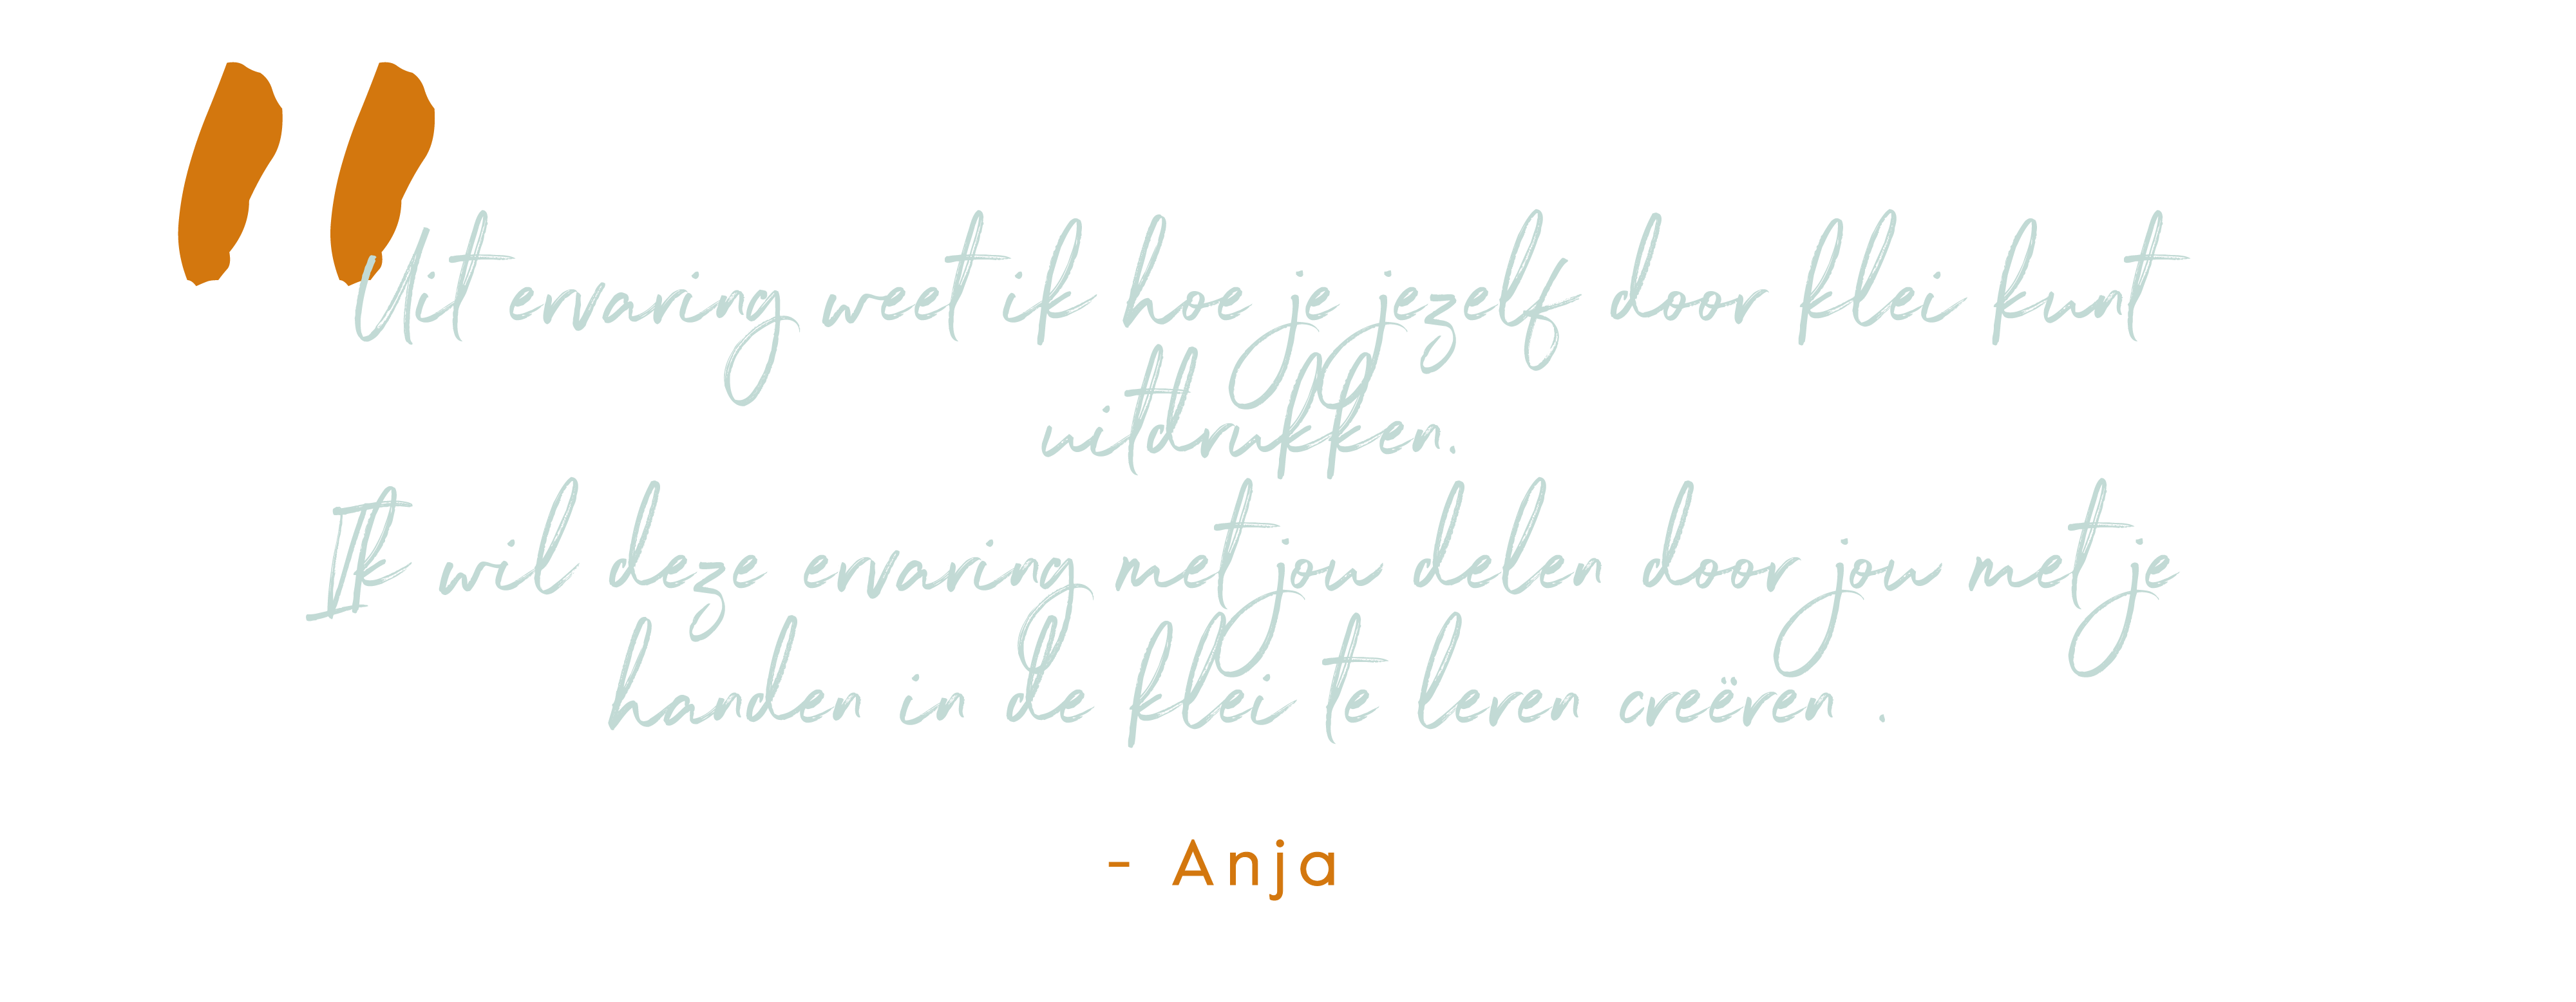 "
Uit ervaring weet ik hoe je jezelf door klei kunt
uitdrukken.
Ik wil deze ervaring met jou delen door jou met je
handen in de klei te leren creëren .
- Anja